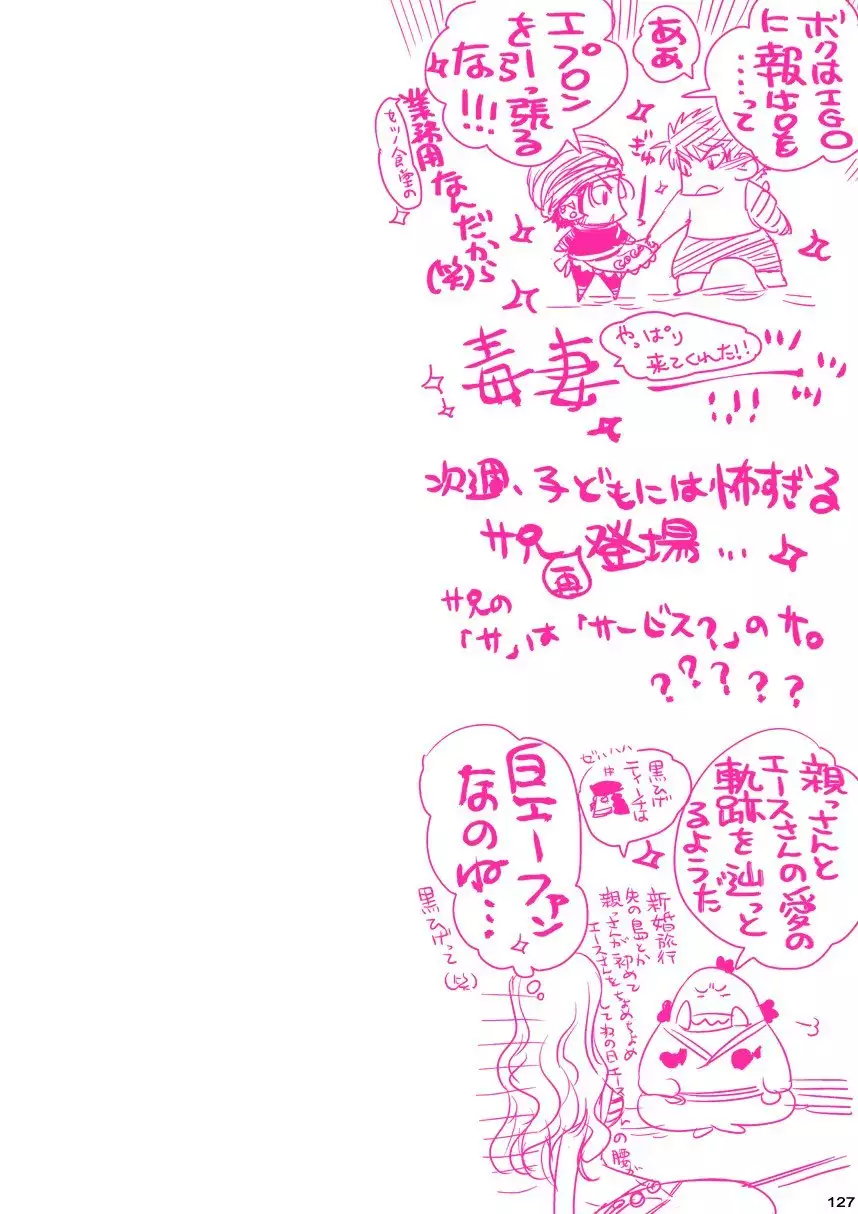 ボクはIGO
に報告を
……って
ああ
エプロン
を引っ張る
な!!!
ぎゅ
セツノ食堂の
業務用なんだから
(笑)
COCO
毒妻
やっぱり
来てくれた!!
次週、子どもには怖すぎる
サ兄再登場…
サ兄の
「サ」は「サービス?」のサ。
?????
親っさんと
エースさんの愛の
軌跡を辿っと
るようだ
ゼハハハ
黒ひげ
ティーチは
白エーファン
なのね…
黒ひげって
(笑)
新婚旅行
先の島とか
親っさんが初めて
エースさんをちょめちょめ
してねの日エース
の腰が
127